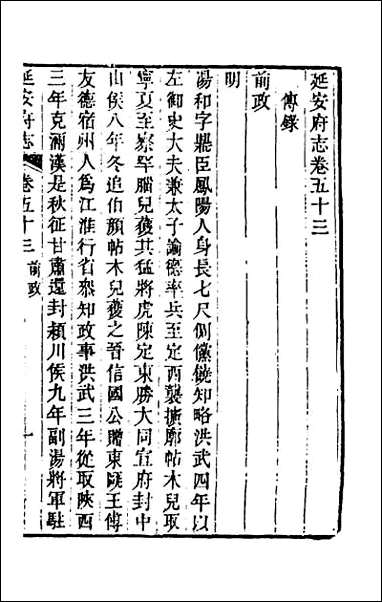 延安府志卷五十三
傳錄
前政
明
湯和字鼎臣鳳陽人身長七尺倜儻饒知略洪武四年以
左御史大夫兼太子諭德率兵至定西襲擴廓帖木兒取
寧夏至察罕腦兒獲其猛將虎陳定東勝大同宣府封中
山侯八年冬追伯顏帖木兒獲之晉信國公贈東甌王傅
友德宿州人為江淮行省叅知政事洪武三年從取陝西
三年克兩漢是秋征甘肅還封潁川侯九年副湯將軍駐
延安府志 卷五十三 前政 一